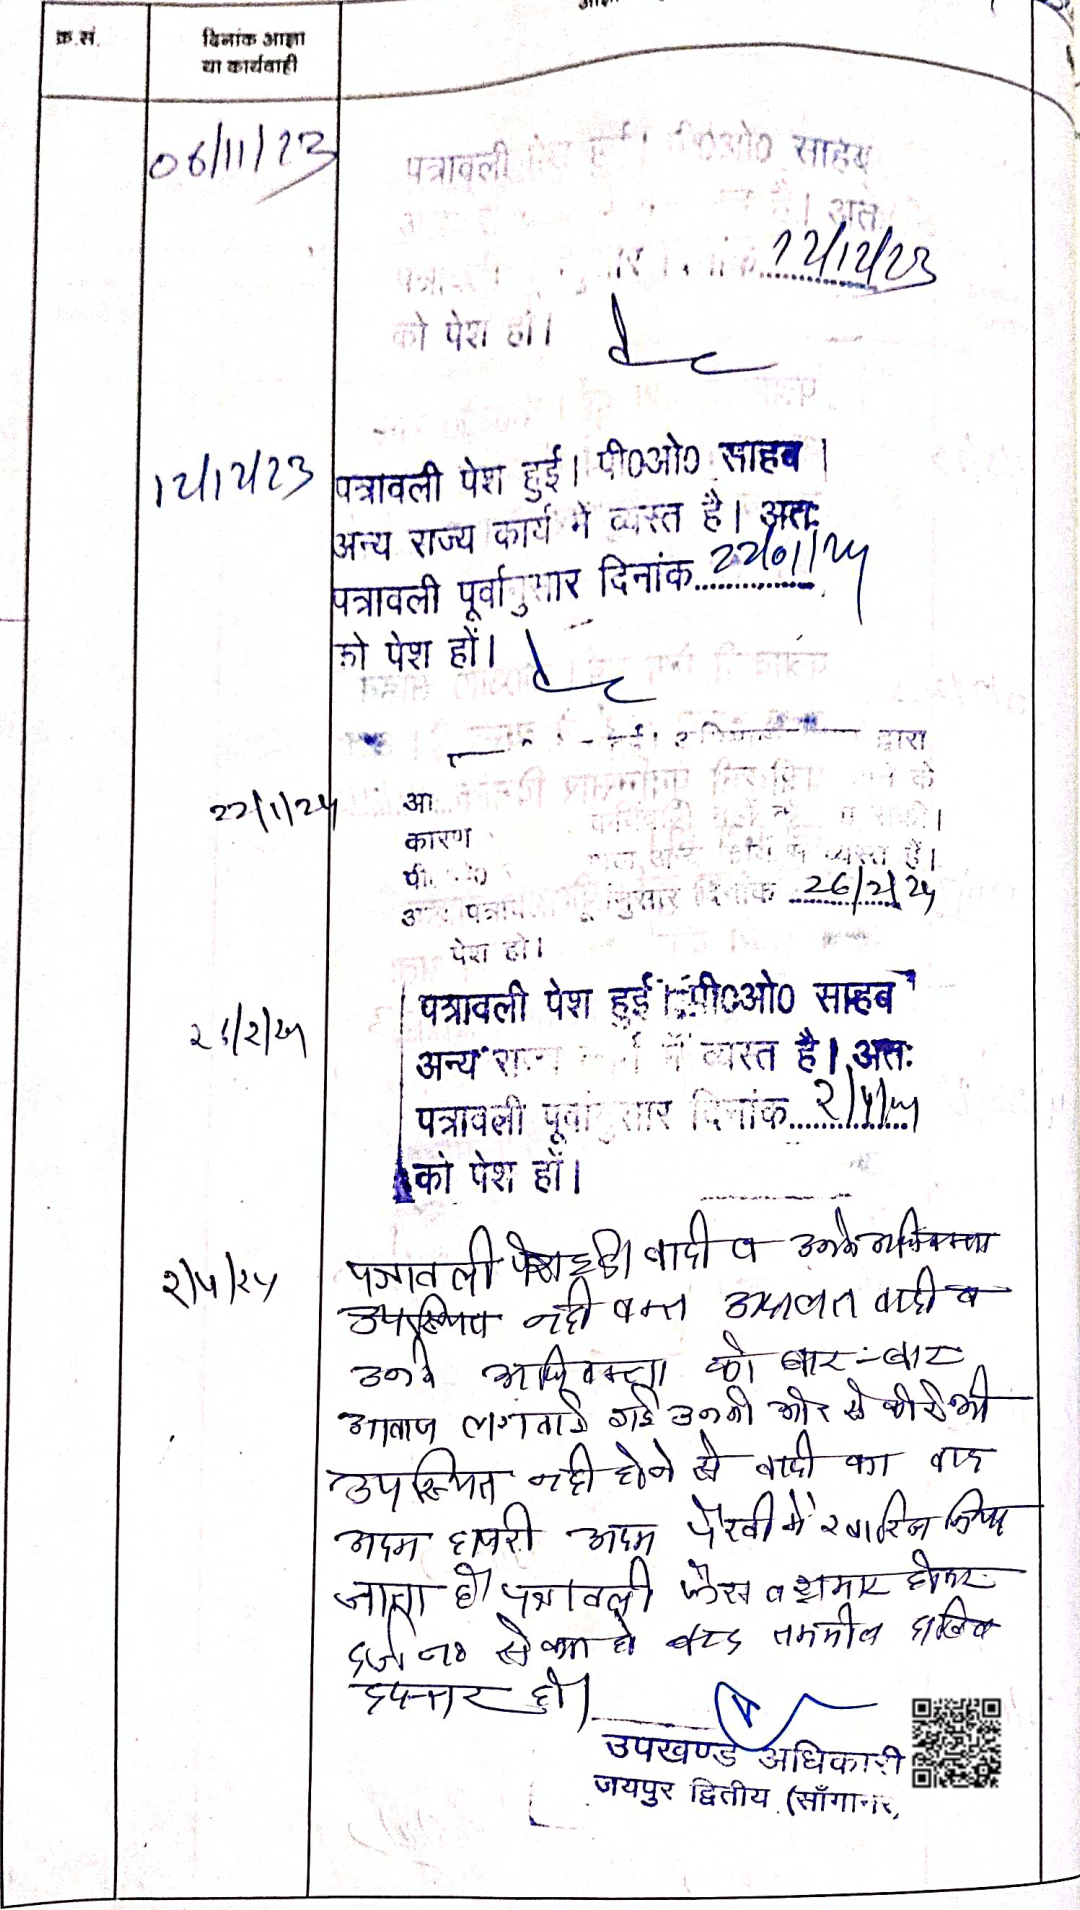 क्र.सं.
दिनांक आज्ञा
या कार्यवाही
06/11/23
पत्रावली पेश हुई। पी०ओ० साहब
है। अतः
12/12/23
को पेश हों।
12/12/23
पत्रावली पेश हुई। पी०ओ० साहब
अन्य राज्य कार्य में व्यस्त है। अतः
पत्रावली पूर्वानुसार दिनांक 22/01/24
को पेश हों।
द्वारा
22/1/24
कारण
व्यस्त हैं।
पत्रावली पूर्वानुसार दिनांक 26/2/24
पेश हो।
26/2/24
पत्रावली पेश हुई। पी०ओ० साहब
अन्य राज्य कार्य में व्यस्त है। अतः
पत्रावली पूर्वानुसार दिनांक 2/4/24
को पेश हों।
2/4/24
पत्रावली पेश हुई। वादी व उनके अधिवक्ता
उपस्थित नही वक्त वादी व
उनके अधिवक्ता को बार-बार
आवाज लगवाई गई उनकी और से कोई भी
उपस्थित नही होने से वादी का वाद
अदम हाजरी अदम पैरवी में खारिज किया
जाता है। पत्रावली फैसल शुमार होकर
दर्ज न० से कम हो बाद तकमील दाखिल
दफ्तर हो।
उपखण्ड अधिकारी
जयपुर द्वितीय (साँगानेर)